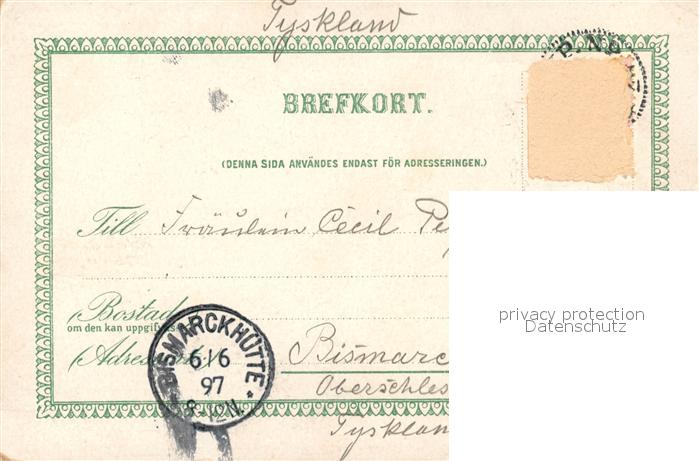 Tyskland
BREFKORT.
(DENNA SIDA ANVÄNDES ENDAST FÖR ADRESSERINGEN.)
Till Fräulein Cécil
privacy protection
Datenschutz
Bostad
om den kan uppgifvas
BISMARCKHÜTTE
6/6
97
8-12N.
Adress
Bismarc
Oberschles
Tysklan